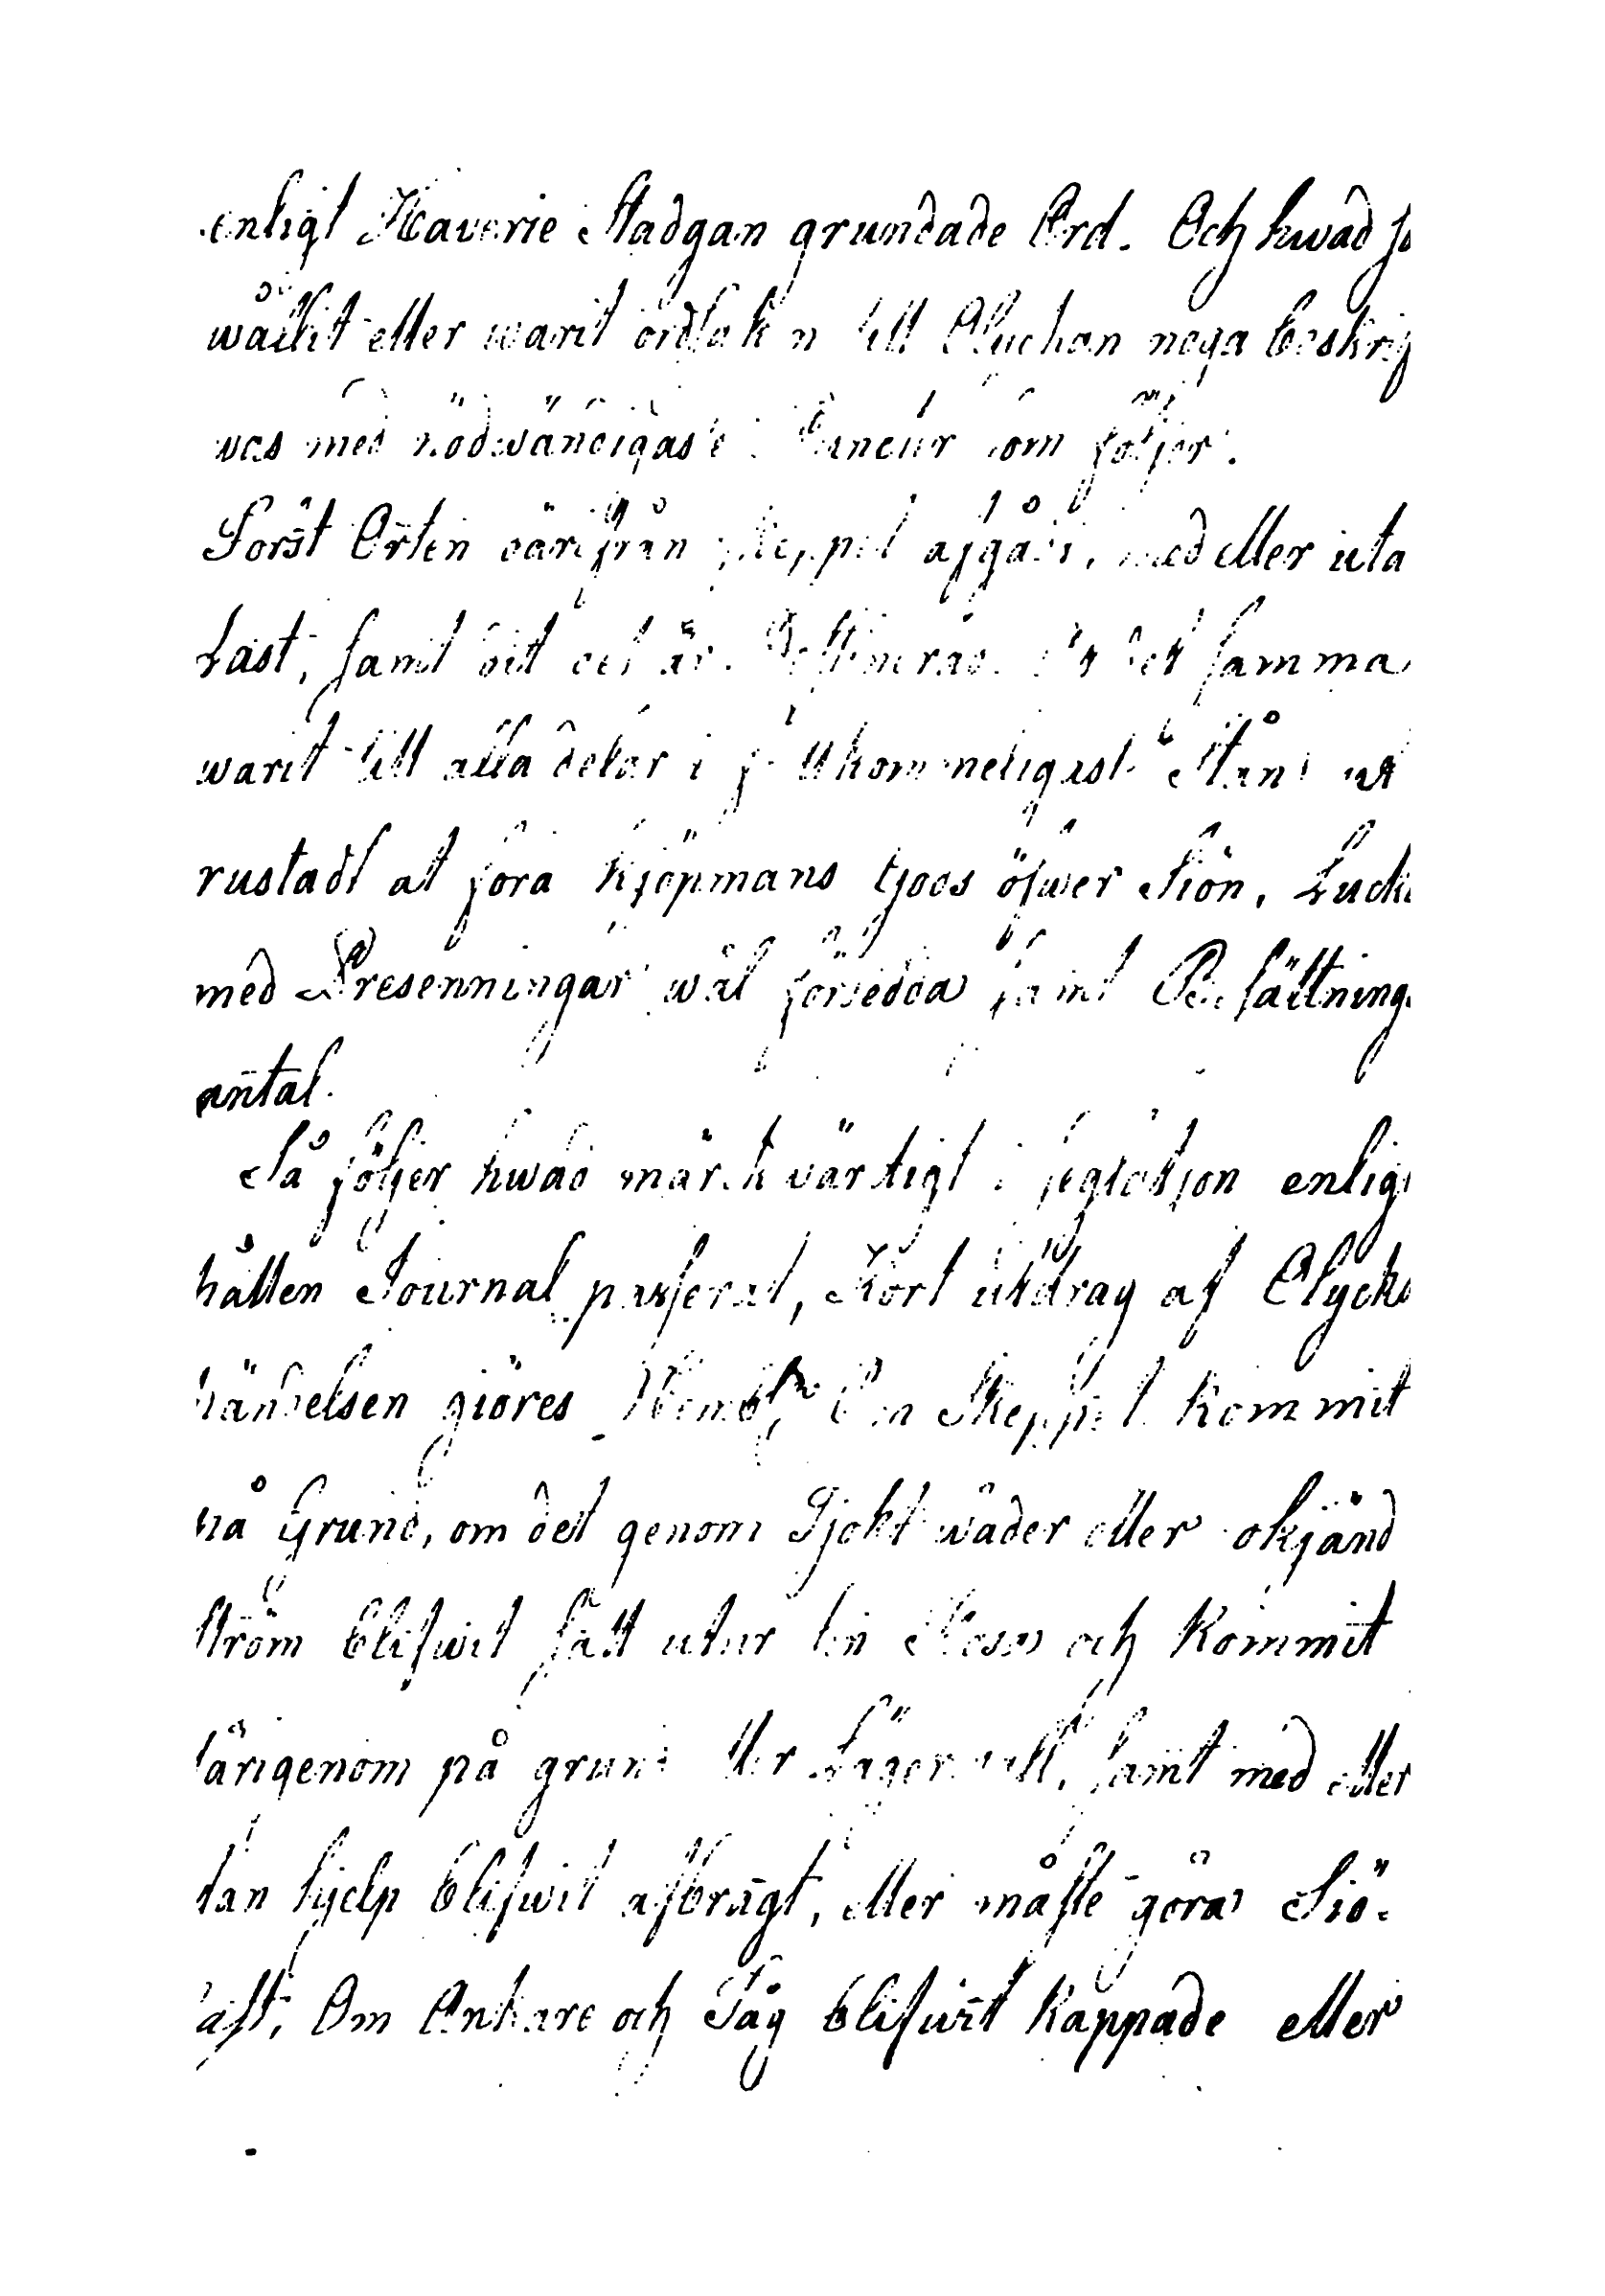 enligt Haverie Stadgan grundade Ord. Och hwad so
wållit eller warit ordsaken till Olyckan noga beskrif
was med nödwändigaste som följer.
Först Orten därifrån skeppet afgått, med eller uta
Last, samt dit det är Destinerad. det samma
warit till alla delar i fullkomneligaste Stånd ut
rustadt at föra Kjöpmans tjoos öfwer Siön, Luck
med Presenningar wäl försedda samt Besättnings
antal.
Så följer hwad märkvärtigt i seglatsjon enlig
hållen Journal passerat, Kort utdrag af Olycks
händelsen giöres Om Skeppet kommit
på Grund, om det genom Tjokt wäder eller okjänd
ström blifwit satt utur sin och kommit
därigenom på grund eller Lägerwall, samt med eller
utan hjelp blifwit afbragt, eller måste göra Siö-
kast, Om Ankare och Tåg blifwit kappade eller